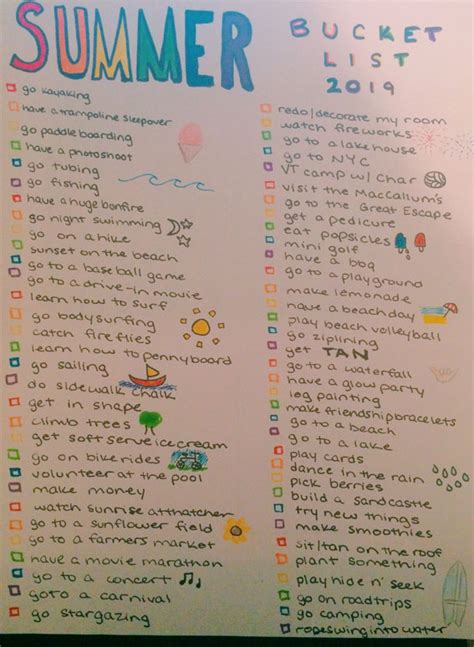 SUMMER
BUCKET
LIST
2019
go kayaking
have a trampoline sleepover
go paddle boarding
have a photoshoot
go tubing
go fishing
have a huge bonfire
go night swimming
go on a hike
sunset on the beach
go to a baseball game
go to a drive-in movie
learn how to surf
go bodysurfing
catch fireflies
learn how to pennyboard
go sailing
do sidewalk chalk
get in shape
climb trees
get soft serve ice cream
go on bike rides
volunteer at the pool
make money
watch sunrise at thatcher
go to a sunflower field
go to a farmers market
have a movie marathon
go to a concert
go to a carnival
go stargazing
redo/decorate my room
watch fireworks
go to a lakehouse
go to NYC
VT camp w/ Char
visit the MacCallum's
go to the Great Escape
get a pedicure
eat popsicles
mini golf
have a bbq
go to a playground
make lemonade
have a beachday
play beach volleyball
go ziplining
get TAN
go to a waterfall
have a glow party
leg painting
make friendship bracelets
go to a beach
go to a lake
play cards
dance in the rain
pick berries
build a sandcastle
try new things
make smoothies
sit/tan on the roof
plant something
play hide n' seek
go on roadtrips
go camping
ropeswing into water